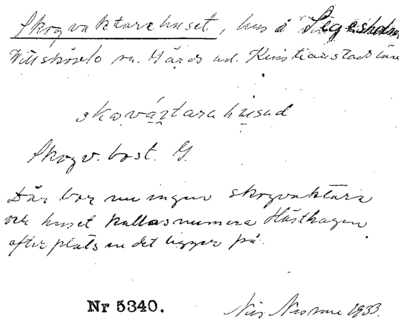 Skogvaktarehuset, hus å Segesholm
Vittskövle sn. Gärds hd. Kristianstads län
skoväktarahusad
Skogv. bost. G.
Där bor nu ingen skogvaktare
och huset kallas numera Hästhagen
efter platsen det ligger på.
Nr 5340.
Nils 1933.